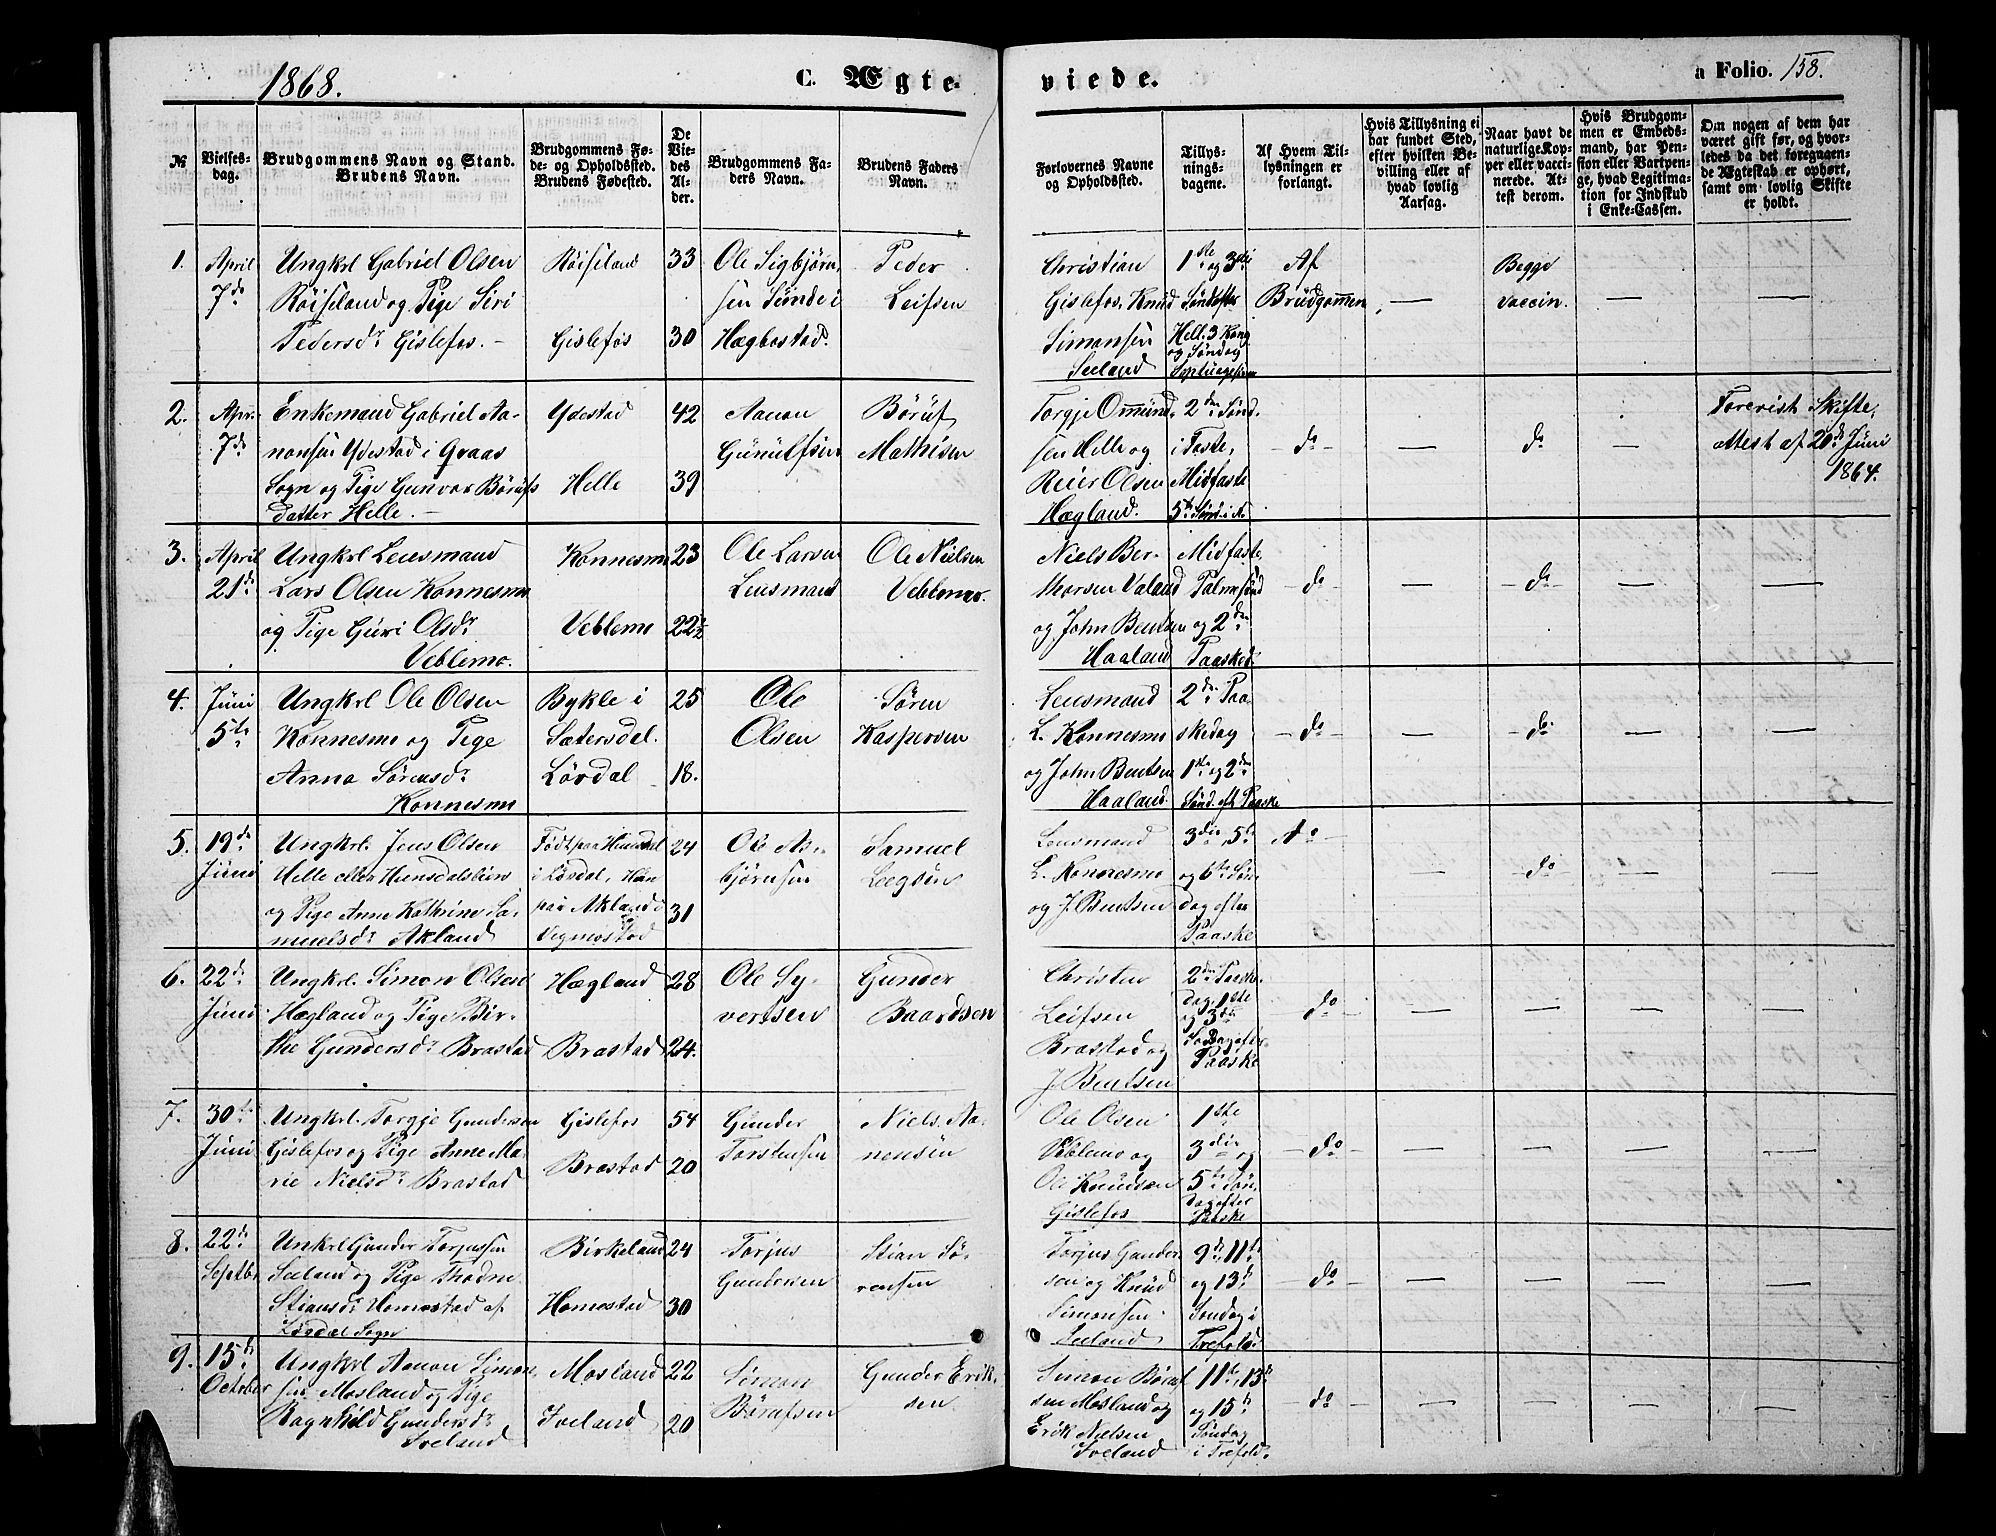 1868.
C. Ægte-
viede.
a Folio. 158.
№
Vielses-
dag.
Brudgommens Navn og Stand.
Brudens Navn.
Brudgommens Fø-
de- og Opholdssted.
Brudens Fødested.
De
Vie-
des
Al-
der.
Brudgommens Fa-
ders Navn.
Brudens Faders
Navn.
Forlovernes Navne
og Opholdssted.
Tillys-
nings-
dagene.
Af Hvem Til-
lysningen er
forlangt.
Hvis Tillysning ei
har fundet Sted,
efter hvilken Be-
villing eller af
hvad lovlig
Aarsag.
Naar havt de
naturlige Kop-
per eller vacci-
nerede. At-
test derom.
Hvis Brudgom-
men er Embeds-
mand, har Pen-
sion eller Vartpen-
ge, hvad Legitima-
tion for Indskud
i Enke-Cassen.
Om nogen af dem har
været gift før, og hvor-
ledes da det foregaaen-
de Ægteskab er ophørt,
samt om lovlig Skifte
er holdt.
1.
April
7de
Ungkrl Gabriel Olsen
Røiseland og Pige Siri
Pedersdr Gislefos. -
Røiseland
Gislefos
33
30
Ole Sigbjørn-
sen Sünde i
Hægbostad.
Peder
Leifsen
Christian
Gislefos, Knud
Simonsen
Seeland
1ste og 3die
Søndefter
Hell. 3 Kong
og Søndag
Af
Brüdgommen,
Begge
vaccin.
2.
April
7de
Enkemand Gabriel Aa-
nonsen Ydestad i Graas
Sogn og Pige Gunvor Børufs
datter Helle. -
Ydestad
Helle
42
39
Aanon
Gunulfsen
Børuf
Mathisen
Torgje Ommünd-
sen Helle og
Reier Olsen
Hægland.
2den Sønd.
i Faste,
Midfaste
5te Sønd. i A.
do
do
Forevist Skifte-
attest af 20de Juni
1864.
3.
April
21de
Ungkrl Lensmand
Lars Olsen Konnesmo
og Pige Guri Olsdr
Veblemo.
Konnesmo
Veblemo
23
22½
Ole Larsen
Lensmand
Ole Nielsen
Veblemo.
Niels Ber-
thorsen Valand
og John Bentsen
Haaland
Midfaste,
Palmesønd
og 2den
Paasked.
do
do
4.
Juni
5te
Ungkrl Ole Olsen
Konnesmo og Pige
Anna Sørensdr
Konnesmo
Bykle i
Sætersdal.
Løvdal
25
18.
Ole
Olsen
Søren
Kaspersen
Lensmand
L. Konnesmo
og John Bentsen
Haaland.
2den Paa-
skedag
1ste og 2den
Sønd. eft Paaske
do
do
5.
19de
Juni
Ungkrl. Jens Olsen
Helle eller
og Pige Anne Kathrine Sa-
muelsdr Akland
Født paa
i Løvdal, Hun
paa Akland i
Vegmostad
24
31
Ole As-
bjørnsen
Samuel
Lensmand
L. Konnesmo
og J. Bentsen
3die, 5te
og 6te Søn-
dag efter
Paaske
do
do
6.
22de
Juni
Ungkrl. Simon Olsen
Hægland og Pige Bir-
the Gundersdr Brastad
Hægland
Brastad
28
24.
Ole Sy-
vertsen
Gunder
Baardsen
Christen
Leifsen
Brastad og
J. Bentsen
2den Paaske-
dag, 1ste
og 3die
Paaske
do
7.
30te
Juni
Ungkrl. Torgje Gundersen
Gislefos og Pige Anne Ma-
rie Nielsdr Brastad
Gislefos
Brastad
54
20
Gunder
Torstensen
Niels Aa-
nensen
Ole Olsen
Veblemo og
Ole Knudsen
Gislefos
1ste
3die og
5te Søn-
dag efter
Paaske
do
8.
22de
Septbr
Unkrl Gunder Torjussen
Seeland og Pige
Stiansdr Homestad af
Løvdal Sogn
Birkeland
Homestad
24
30
Torjus
Gundersen
Stian Sø-
rensen
Torjus Gunder-
sen og Knud
Simonsen
Seeland
9de, 11te
og 13de
Søndag i
Trefold.
do
9.
15de
October
Ungkrl Aanon Simon-
sen Mosland og Pige
Ragnhild Gundersdr
Iveland
Mosland
Iveland
22
20
Simon
Børufsen
Gunder Erik-
sen.
Simon Børuf-
sen Mosland og
Erik Nielsen
Iveland
11te, 13de
og 15de
Søndag
i Trefold.
do